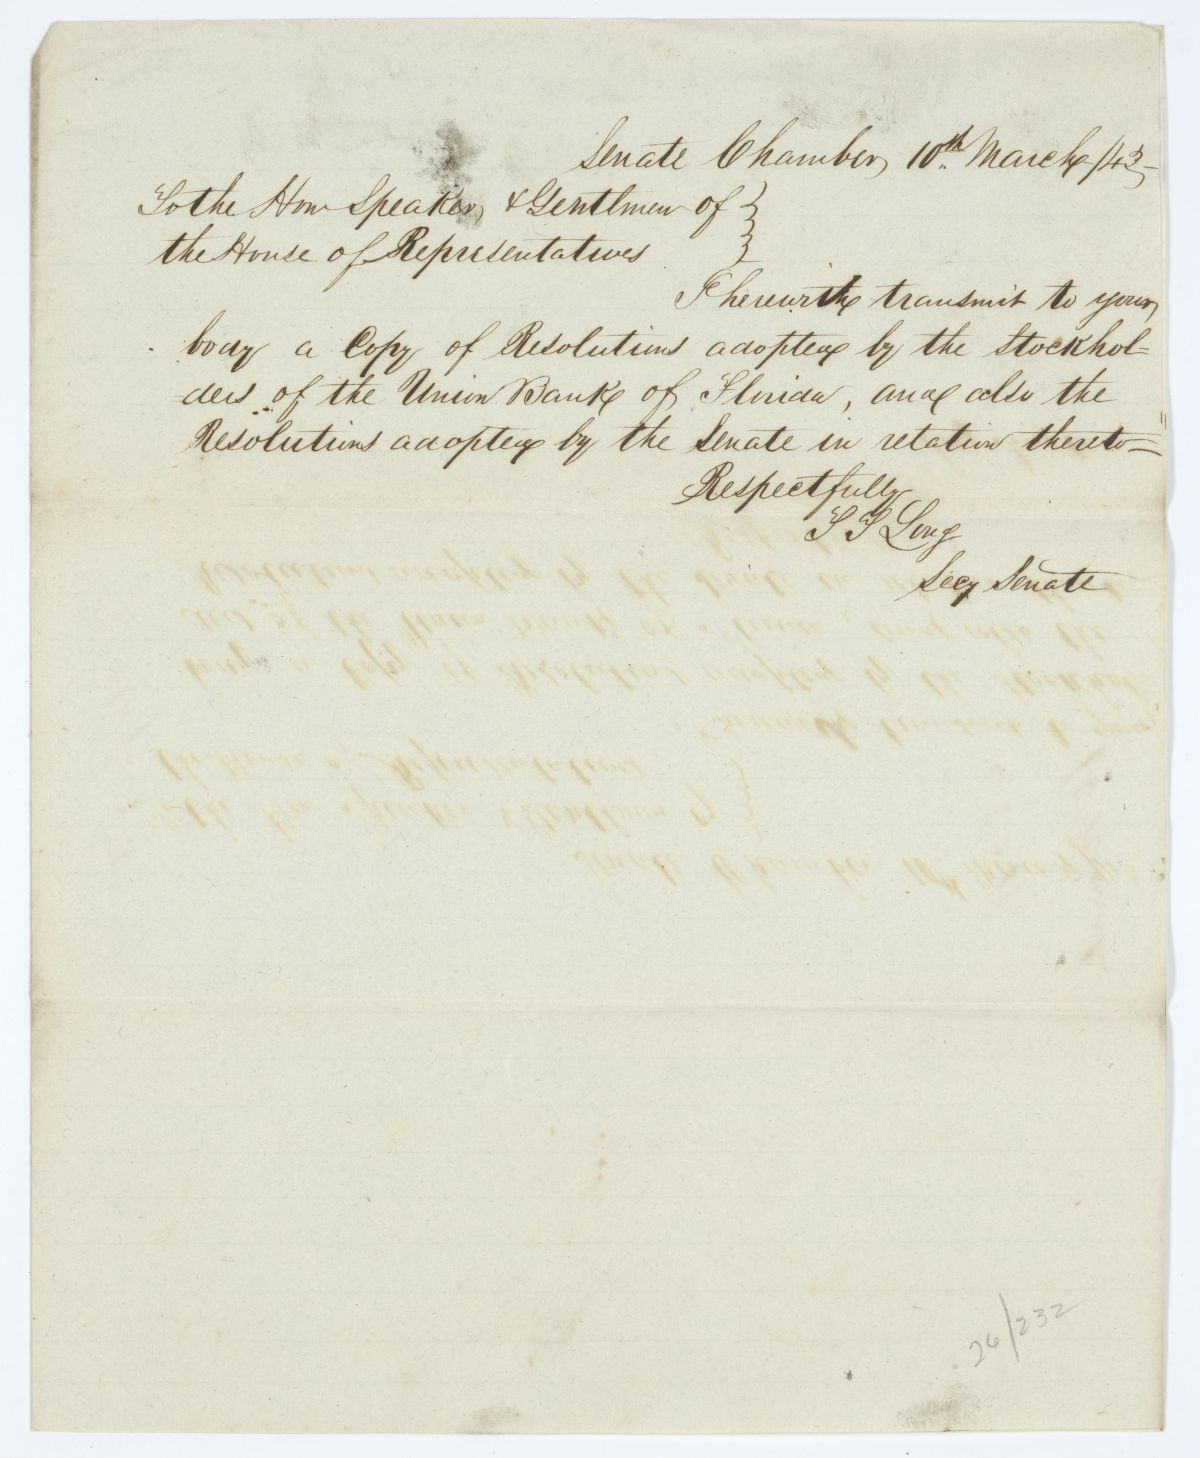 Senate Chamber, 10th March /43
To the Hon Speaker, & Gentlmen of }
the House of Representatives }
I herewith transmit to your
body a Copy of Resolutions adopted by the Stockhol-
ders of the Union Bank of Florida, and also the
Resolutions adopted by the Senate in retation thereto=
Respectfully
T T Long
Secy Senate
26/232